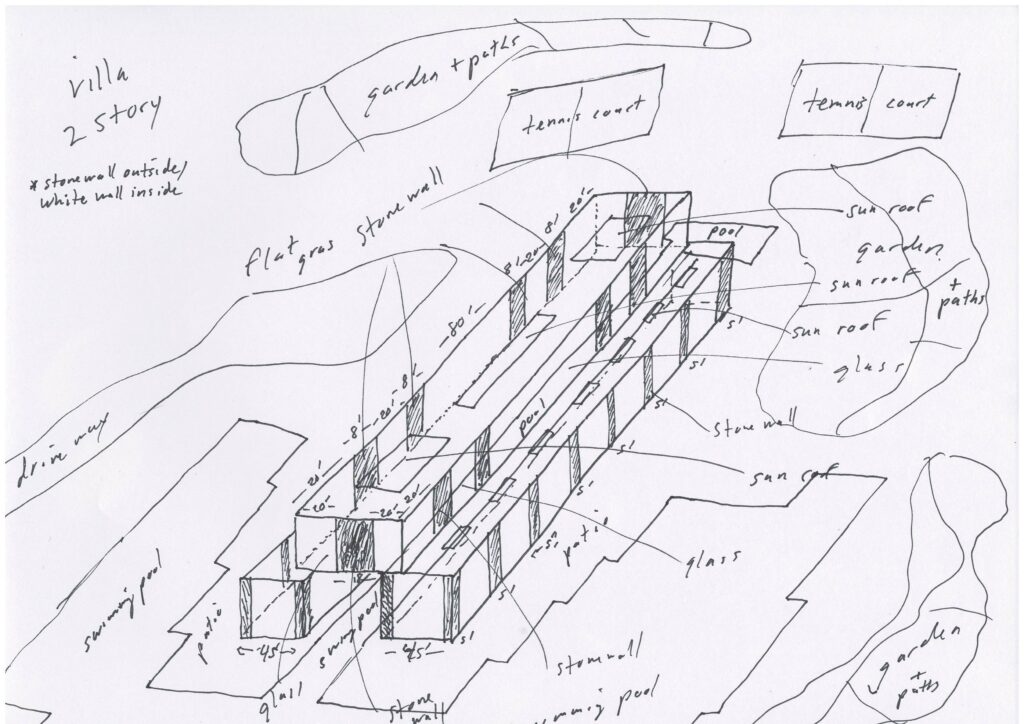 villa
2 story
* stonewall outside/
white wall inside
garden + paths
tennis court
tennis court
flat gras
stonewall
20'-
8'
-20'-
8'
-80'-
-8'-
-20'-
-8'-
-20'-
-20'-
-20'-
-20'-
pool
sun roof
garden
+
paths
sun roof
sun roof
glass
stonewall
sun rof
pool
5'
5'
5'
5'
5'
5'
5'
-5'-
patio
glass
stonwall
patio
-45'-
-45'-
glass
stone
wall
garden
+
paths